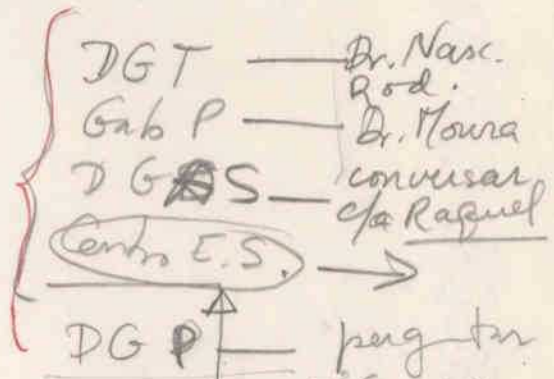 DGT — Dr. Nasc. Rod.
Gab P — Dr. Moura
DGS — conversar c/a Raquel
Centro E.S. →
DGP —